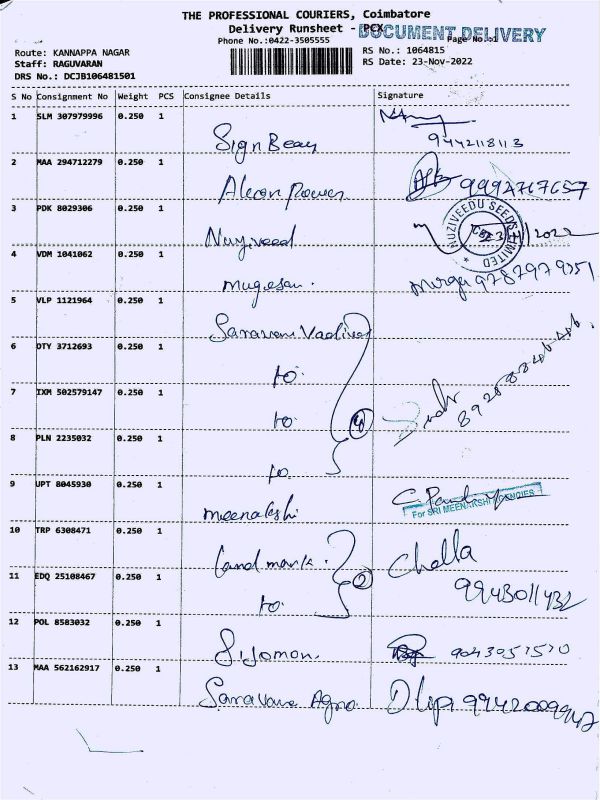 THE PROFESSIONAL COURIERS, Coimbatore
Delivery Runsheet - PCX
DOCUMENT DELIVERY
Phone No.:0422-3505555
Page No.:1
Route: KANNAPPA NAGAR
RS No.: 1064815
Staff: RAGUVARAN
RS Date: 23-Nov-2022
DRS No.: DCJB106481501
S No Consignment No Weight PCS Consignee Details Signature
1 SLM 307979996 0.250 1
Sign Beay 9442118113
2 MAA 294712279 0.250 1
Alcon Power
3 PDK 8029306 0.250 1
Nuziveed
NUZIVEEDU SEEDS LIMITED
2022
4 VDM 1041062 0.250 1
mugesan. 9787979351
5 VLP 1121964 0.250 1
Saravana Vadivel
6 OTY 3712693 0.250 1
to
7 IXM 502579147 0.250 1
to
4
8 PLN 2235032 0.250 1
to
9 UPT 8045930 0.250 1
meenakshi
For SRI MEENAKSHI AGENCIES
10 TRP 6308471 0.250 1
Land mark. Challa
11 EDQ 25108467 0.250 1
to 2 9943011432
12 POL 8583032 0.250 1
Sijomon. 9043051510
13 MAA 562162917 0.250 1
Saravana Agro Dilip 9942009942